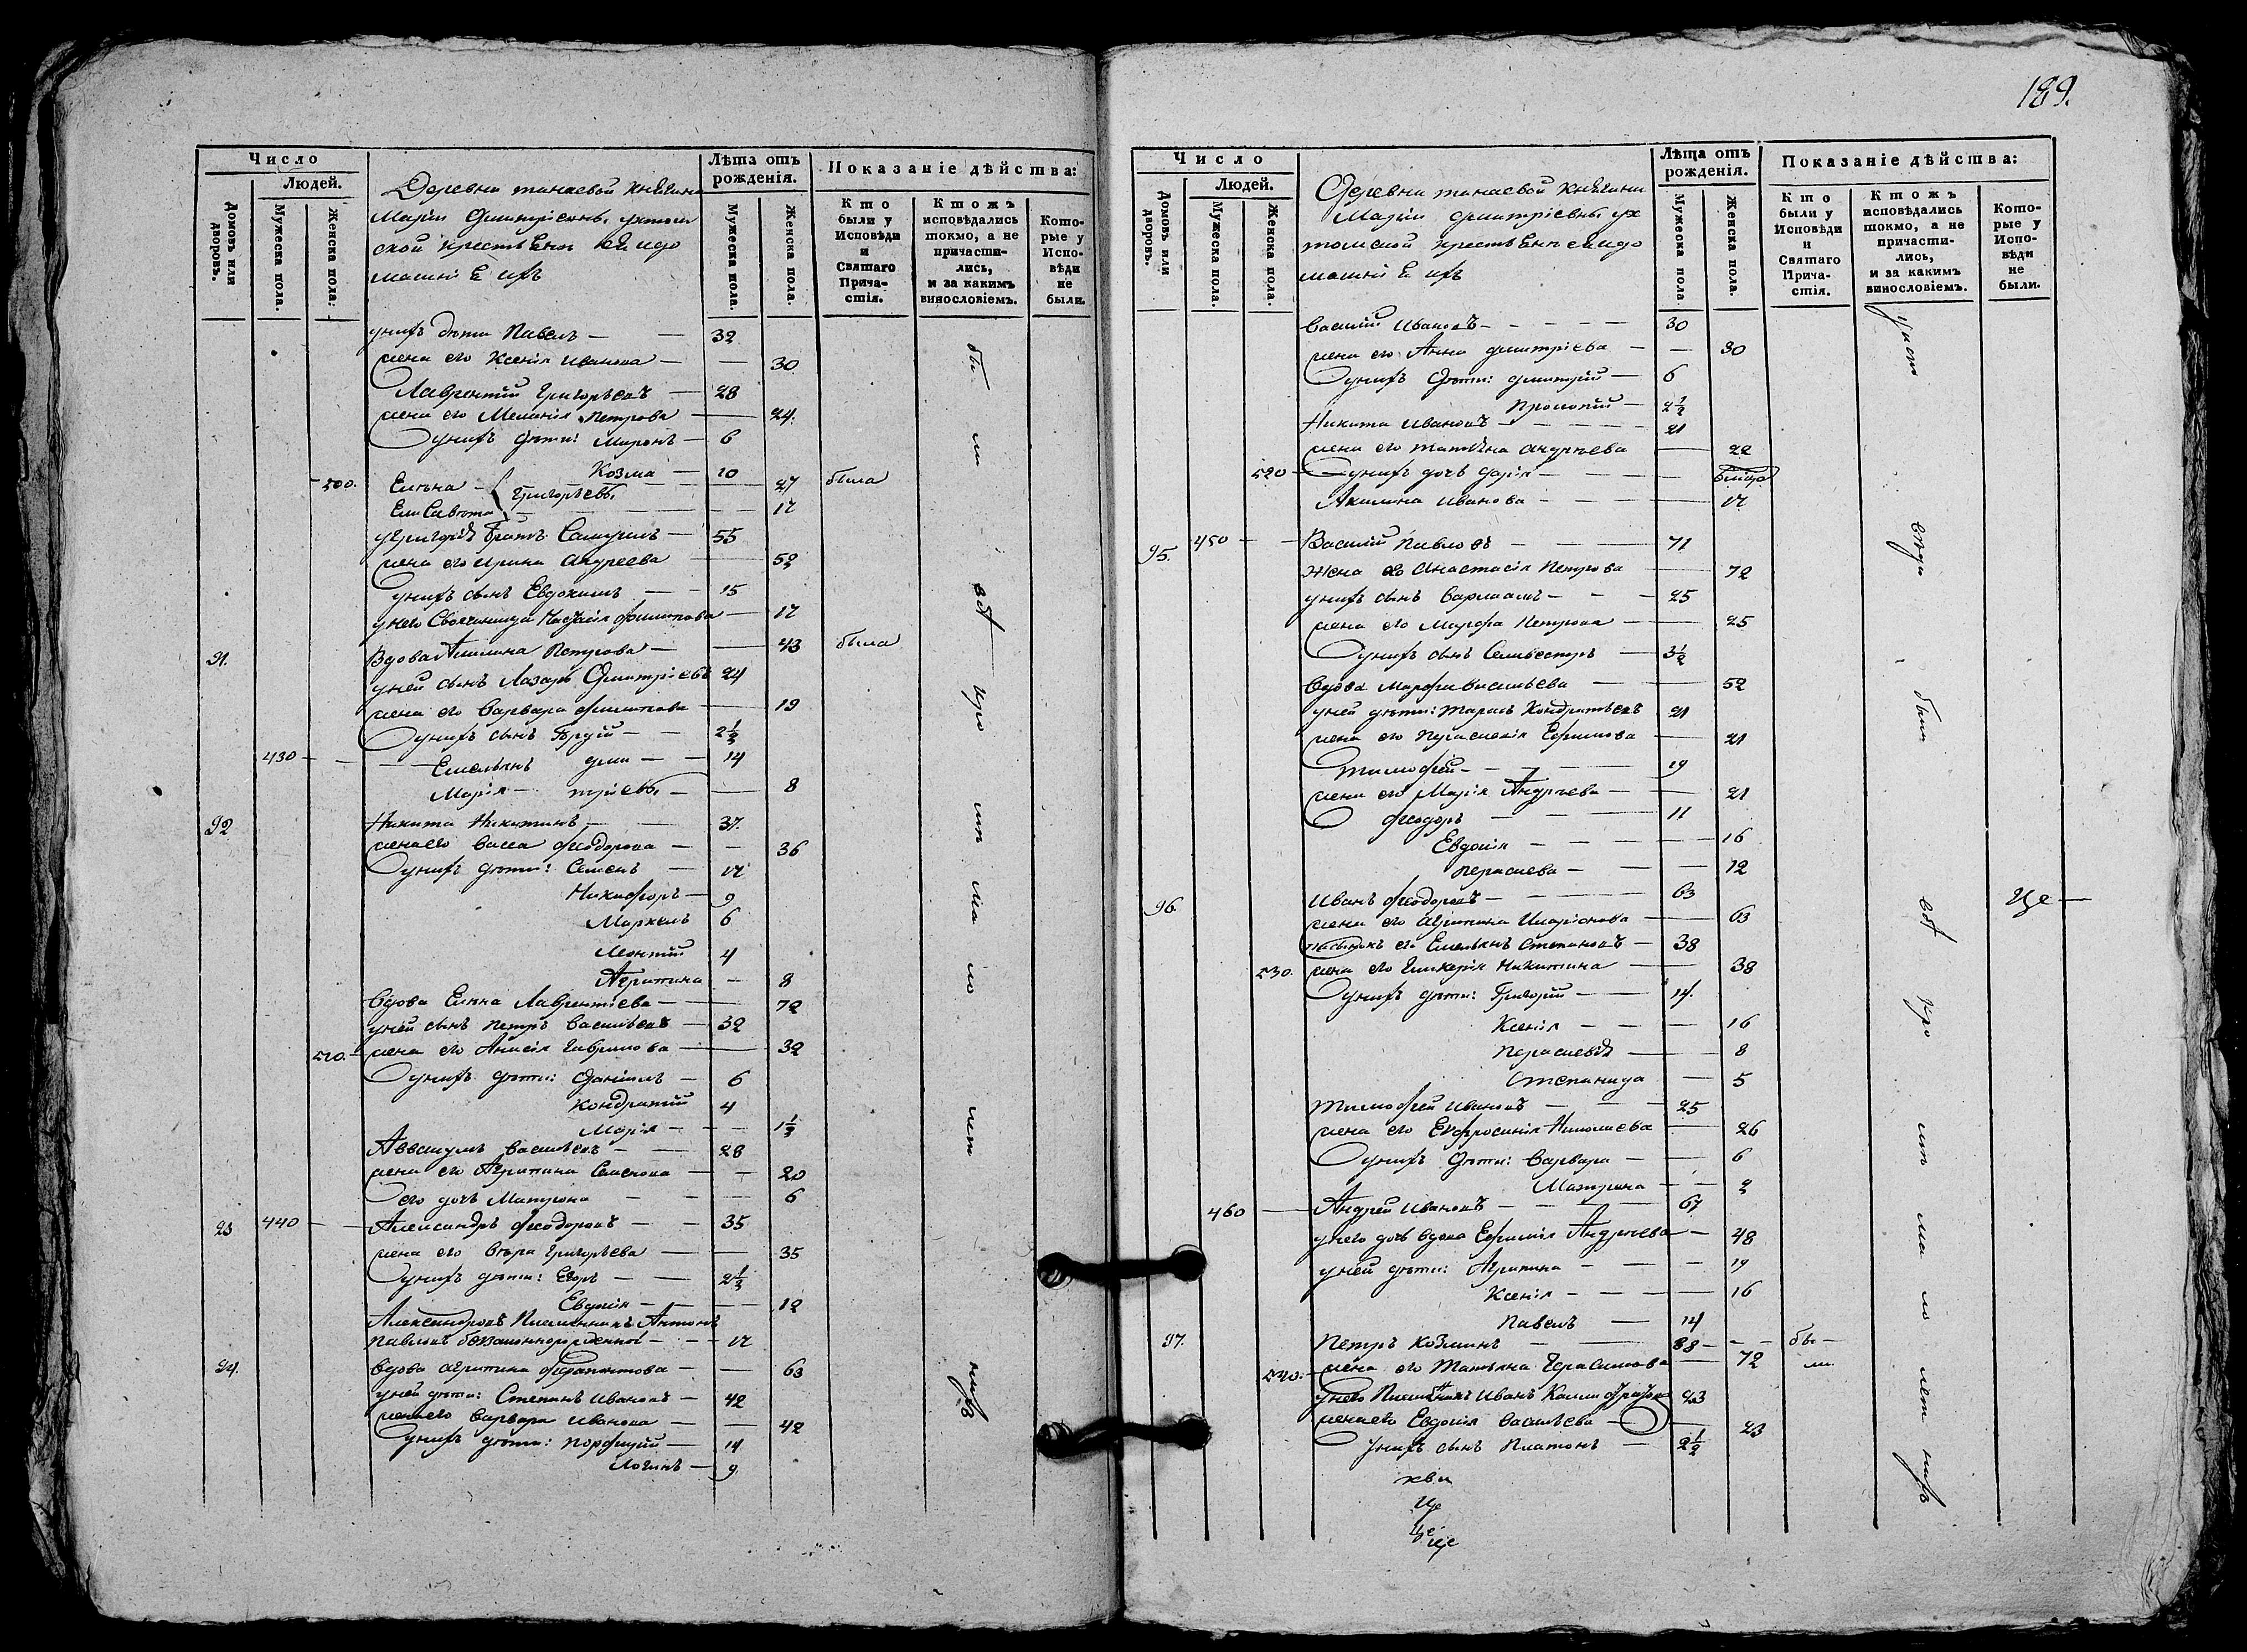 Число
Людей.
Домовъ или дворовъ.
Мужеска пола.
Женска пола.
Деревни танаевой княгини
Маріи Дмитріевны ухтом
ской крестьяне и идо
машніе ихъ
Лѣта отъ рожденія.
Мужеска пола.
Женска пола.
Показаніе дѣйства:
Кто были у Исповѣди и Святаго Причастія.
Ктожъ исповѣдались токмо, а не причастились, и за какимъ винословіемъ.
Которые у Исповѣди не были.
унихъ дѣти Павелъ — 32
жена его Ксенія Иванова — 30
Лаврентий Григорьевъ — 28
жена его Меланія Петрова — 24.
унихъ дѣти: Миронъ — 6
Козма — 10
500. Елена Григорьевы 27 была
Елисавета 17
уГригорія братъ Самуилъ — 55
жена его Ирина Андреева 52
унихъ сынъ Евдокимъ — 15
унего Своячиница филипова — 17
91. Вдова Акилина Петрова — 43 была
уней сынъ Лазарь Дмитріевъ 24
жена его Варвара филипова — 19
унихъ сынъ — 2½
430 Емельянъ дми — 14
Марія тріевы — 8
92 Никита Никитинъ — 37.
жена его Васса феодорова — 36
унихъ дѣти: Семенъ — 12
Никифоръ — 9
Маркелъ 6
Леонтий 4
Агрипина — 8
Вдова Елена Лаврентіева — 72
уней сынъ Петръ Васильевъ — 32
510. жена его Анисія Гаврилова — 32
унихъ дѣти: Даніилъ — 6
Кондратий 4
Марія — 1½
Аввакумъ Васильевъ — 28
жена его Агрипина Семенова — 20
его дочь Матрона 6
93 440 Александръ феодоровъ — 35
жена его Вѣра Григорьева — 35
унихъ дѣти: Егоръ — 2½
Евдокія — 12
Александровъ Племянникъ Антонъ
Павловъ — 12
94. Вдова агрипина — 63
уней дѣти: Степанъ Ивановъ — 42
жена его Варвара Иванова — 42
унихъ дѣти: порфирий — 14
Логинъ — 9.
бы ли
189.
Число
Людей.
Домовъ или дворовъ.
Мужеска пола.
Женска пола.
Деревни танаевой княгини
Маріи дмитріевны ух
томской крестьяне и идо
машніе ихъ
Лѣта отъ рожденія.
Мужеска пола.
Женска пола.
Показаніе дѣйства:
Кто были у Исповѣди и Святаго Причастія.
Ктожъ исповѣдались токмо, а не причастились, и за какимъ винословіемъ.
Которые у Исповѣди не были.
Василій Ивановъ — 30
жена его Анна дмитріева — 30
унихъ дѣти: дмитрий — 6
Прокопий — 2½
Никита Ивановъ — 21
жена его татьяна андреева 22
520 унихъ дочь дарія —
Акилина Иванова — 12
95. 450 Василий Павловъ — 71
Жена его Анастасія Петрова 72
унихъ сынъ Варлаамъ — 25
жена его Марфа Петрова — 25
унихъ сынъ Селивестръ — 3½
Вдова Марфа Васильева — 52
уней дѣти: тарасъ Кондратьевъ 21
жена его Ефимова 21
тимофей — 19
жена его Марія Андреева — 21
феодоръ — 11
Евдокія — 16
12
96. Иванъ феодоровъ — 63
жена его Агрипина Иларіонова — 63
пасынокъ его Емельянъ степановъ — 38
530. жена его Гликерія Никитина 38
унихъ дѣти: Григорий — 14.
Ксенія — 16
8
степанида — 5
тимофей Ивановъ — 25
жена его Евфросинія Николаева 26
унихъ дѣти: Варвара — 6
Матрона — 2
460 Андрей Ивановъ — 67
унего дочь вдова Ефимія Андреева — 48
уней дѣти: Агрипина — 19
Ксенія — 16
Павелъ — 14
97. Петръ Козминъ — 88 бы —
540. жена его Татьяна Герасимова 72 ли.
унего Племянникъ Иванъ 23
жена его Евдокія Васильева — 23
унихъ сынъ Платонъ — 2½